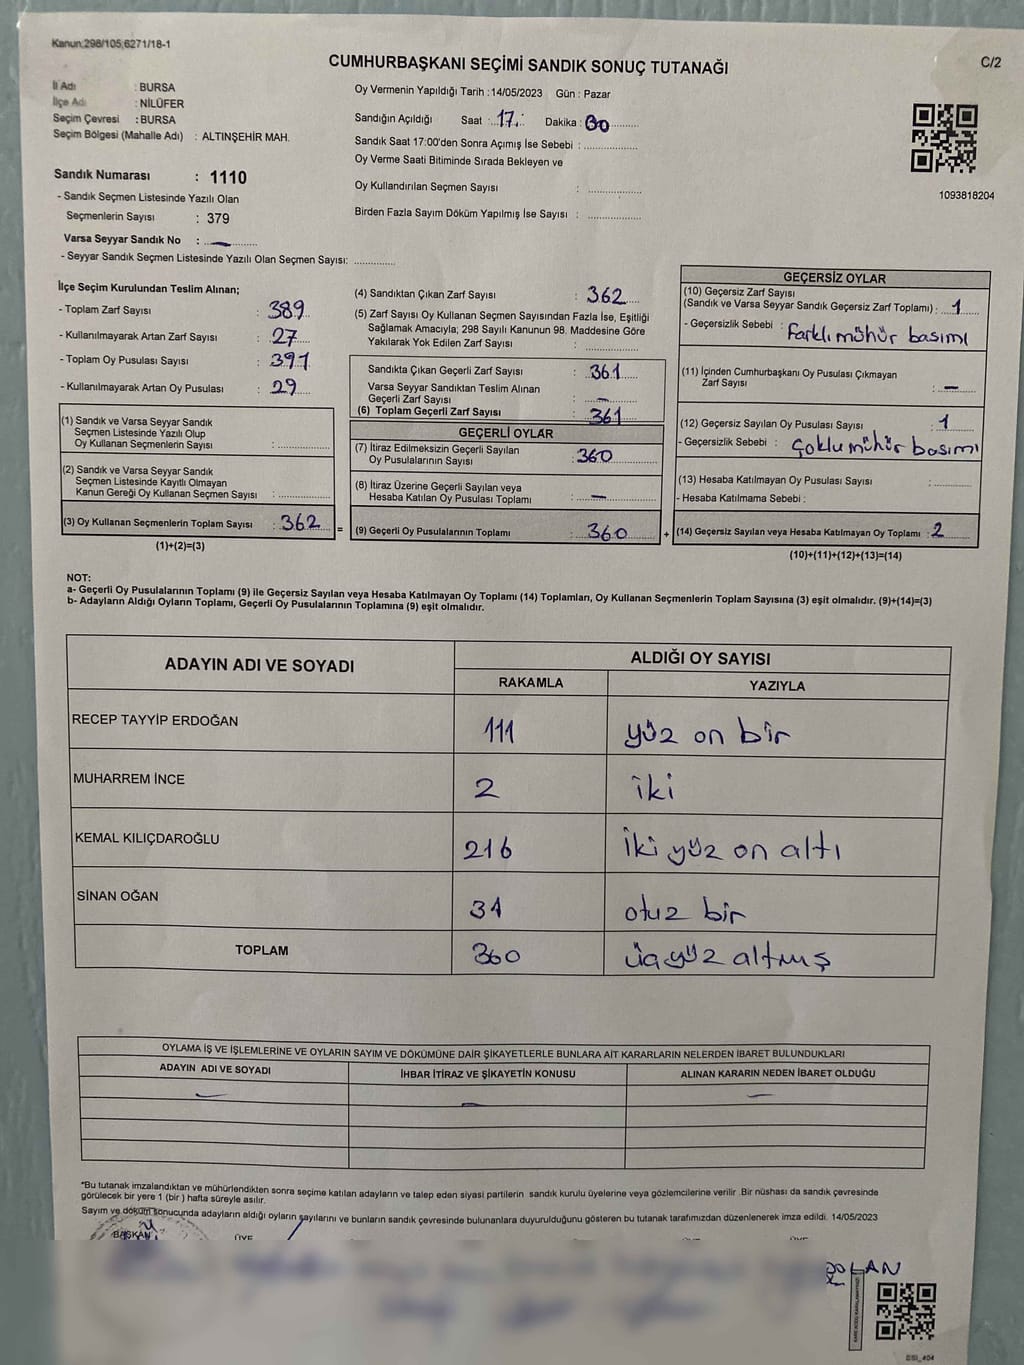 Kanun:298/105;6271/18-1
CUMHURBAŞKANI SEÇİMİ SANDIK SONUÇ TUTANAĞI
C/2
İl Adı : BURSA
İlçe Adı : NİLÜFER
Seçim Çevresi : BURSA
Seçim Bölgesi (Mahalle Adı) : ALTINŞEHİR MAH.
Sandık Numarası : 1110
- Sandık Seçmen Listesinde Yazılı Olan
Seçmenlerin Sayısı : 379
Varsa Seyyar Sandık No : —
- Seyyar Sandık Seçmen Listesinde Yazılı Olan Seçmen Sayısı: ..............
Oy Vermenin Yapıldığı Tarih : 14/05/2023 Gün : Pazar
Sandığın Açıldığı Saat : 17 Dakika : 00
Sandık Saat 17:00'den Sonra Açımış İse Sebebi : ..................
Oy Verme Saati Bitiminde Sırada Bekleyen ve
Oy Kullandırılan Seçmen Sayısı : ..................
Birden Fazla Sayım Döküm Yapılmış İse Sayısı : ..................
1093818204
İlçe Seçim Kurulundan Teslim Alınan;
- Toplam Zarf Sayısı : 389
- Kullanılmayarak Artan Zarf Sayısı : 27
- Toplam Oy Pusulası Sayısı : 391
- Kullanılmayarak Artan Oy Pusulası : 29
(1) Sandık ve Varsa Seyyar Sandık
Seçmen Listesinde Yazılı Olup
Oy Kullanan Seçmenlerin Sayısı :
(2) Sandık ve Varsa Seyyar Sandık
Seçmen Listesinde Kayıtlı Olmayan
Kanun Gereği Oy Kullanan Seçmen Sayısı :
(3) Oy Kullanan Seçmenlerin Toplam Sayısı : 362 =
(1)+(2)=(3)
(4) Sandıktan Çıkan Zarf Sayısı : 362
(5) Zarf Sayısı Oy Kullanan Seçmen Sayısından Fazla İse, Eşitliği
Sağlamak Amacıyla; 298 Sayılı Kanunun 98. Maddesine Göre
Yakılarak Yok Edilen Zarf Sayısı :
Sandıkta Çıkan Geçerli Zarf Sayısı : 361
Varsa Seyyar Sandıktan Teslim Alınan
Geçerli Zarf Sayısı : —
(6) Toplam Geçerli Zarf Sayısı : 361
GEÇERLİ OYLAR
(7) İtiraz Edilmeksizin Geçerli Sayılan
Oy Pusulalarının Sayısı : 360
(8) İtiraz Üzerine Geçerli Sayılan veya
Hesaba Katılan Oy Pusulası Toplamı : —
(9) Geçerli Oy Pusulalarının Toplamı : 360 +
GEÇERSİZ OYLAR
(10) Geçersiz Zarf Sayısı
(Sandık ve Varsa Seyyar Sandık Geçersiz Zarf Toplamı) : 1
- Geçersizlik Sebebi : Farklı mühür basımı
(11) İçinden Cumhurbaşkanı Oy Pusulası Çıkmayan
Zarf Sayısı : —
(12) Geçersiz Sayılan Oy Pusulası Sayısı : 1
- Geçersizlik Sebebi : Çoklu mühür basımı
(13) Hesaba Katılmayan Oy Pusulası Sayısı :
- Hesaba Katılmama Sebebi :
(14) Geçersiz Sayılan veya Hesaba Katılmayan Oy Toplamı : 2
(10)+(11)+(12)+(13)=(14)
NOT:
a- Geçerli Oy Pusulalarının Toplamı (9) ile Geçersiz Sayılan veya Hesaba Katılmayan Oy Toplamı (14) Toplamları, Oy Kullanan Seçmenlerin Toplam Sayısına (3) eşit olmalıdır. (9)+(14)=(3)
b- Adayların Aldığı Oyların Toplamı, Geçerli Oy Pusulalarının Toplamına (9) eşit olmalıdır.
ADAYIN ADI VE SOYADI
ALDIĞI OY SAYISI
RAKAMLA YAZIYLA
RECEP TAYYİP ERDOĞAN 111 yüz on bir
MUHARREM İNCE 2 iki
KEMAL KILIÇDAROĞLU 216 iki yüz on altı
SİNAN OĞAN 31 otuz bir
TOPLAM 360 üçyüz altmış
OYLAMA İŞ VE İŞLEMLERİNE VE OYLARIN SAYIM VE DÖKÜMÜNE DAİR ŞİKAYETLERLE BUNLARA AİT KARARLARIN NELERDEN İBARET BULUNDUKLARI
ADAYIN ADI VE SOYADI İHBAR İTİRAZ VE ŞİKAYETİN KONUSU ALINAN KARARIN NEDEN İBARET OLDUĞU
— — —
*Bu tutanak imzalandıktan ve mühürlendikten sonra seçime katılan adayların ve talep eden siyasi partilerin sandık kurulu üyelerine veya gözlemcilerine verilir .Bir nüshası da sandık çevresinde
görülecek bir yere 1 (bir ) hafta süreyle asılır.
Sayım ve döküm sonucunda adayların aldığı oyların sayılarını ve bunların sandık çevresinde bulunanlara duyurulduğunu gösteren bu tutanak tarafımızdan düzenlenerek imza edildi. 14/05/2023
BAŞKAN ÜYE